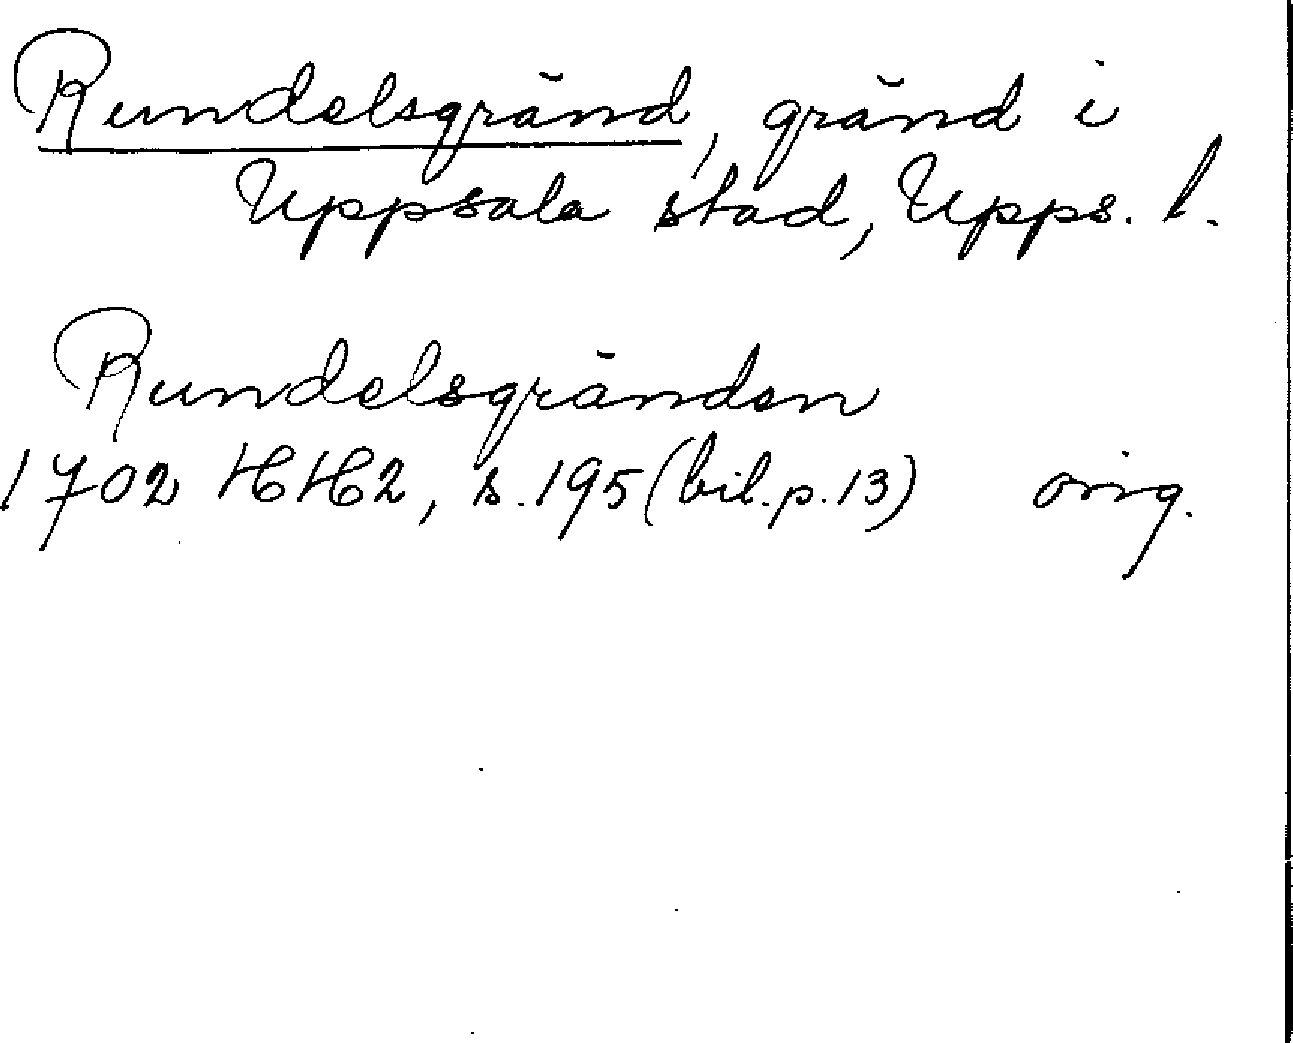 Rundelsgränd, gränd i
Uppsala stad, Upps. l.
Rundelsgränden
1702 HH2, s. 195 (bil. p. 13) orig.